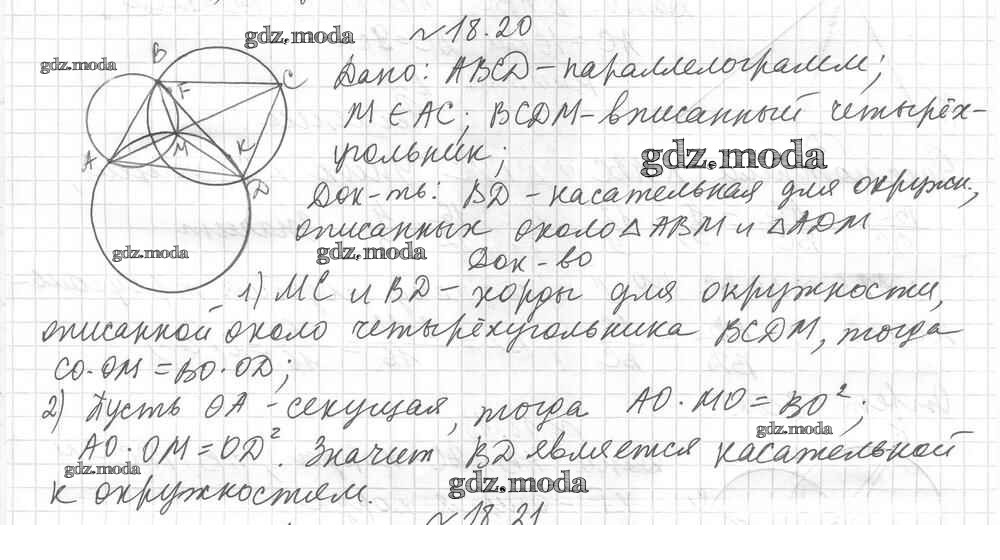 №18.20
gdz.moda
gdz.moda
Дано: ABCD – параллелограмм;
M ∈ AC; BCDM – вписанный четырёх-
угольник;
gdz.moda
Док-ть: BD – касательная для окружн.,
описанных около △ABM и △ADM
gdz.moda
gdz.moda
Док-во
B
F
C
A
M
K
D
1) MC и BD – хорды для окружности,
описанной около четырёхугольника BCDM, тогда
CO·OM = BO·OD;
2) Пусть OA – секущая, тогда AO·MO = BO²;
gdz.moda
AO·OM = OD². Значит BD является касательной
gdz.moda
к окружностям.
gdz.moda
№18.21